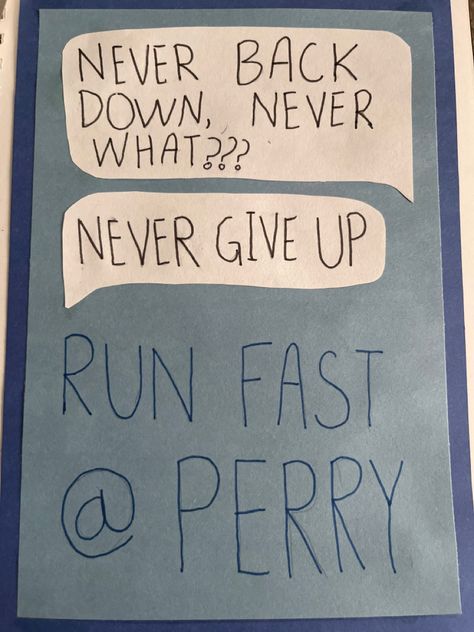 NEVER BACK
DOWN, NEVER
WHAT???
NEVER GIVE UP
RUN FAST
@ PERRY